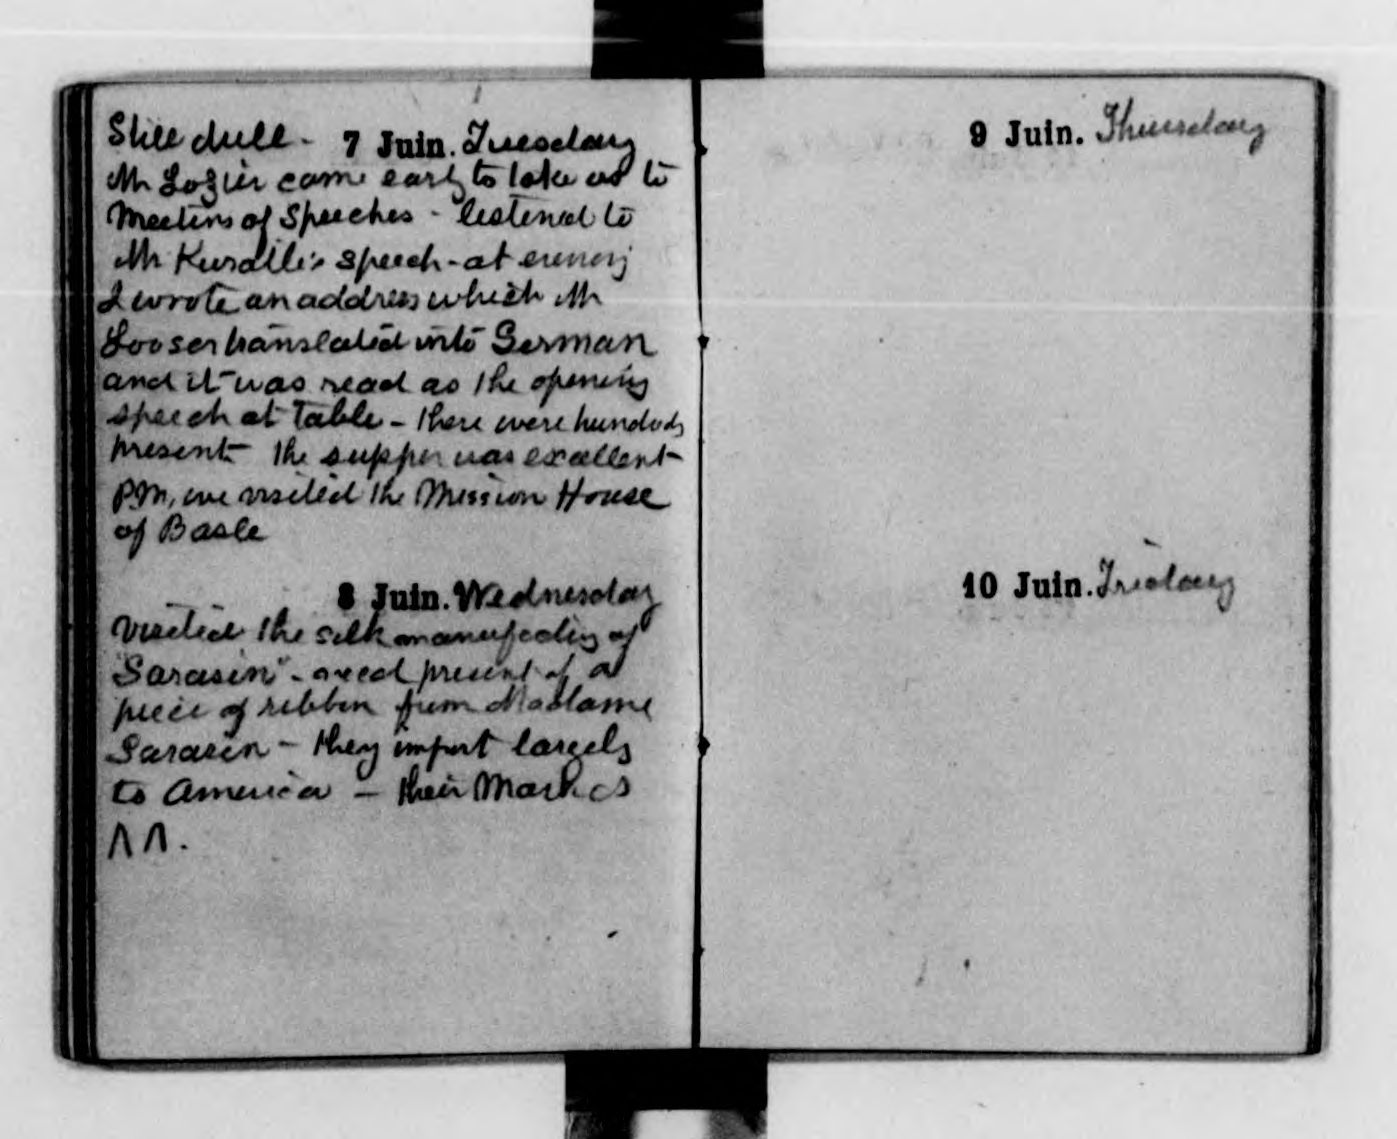 Still dull - 7 Juin. Tuesday
Mr Lozier came early to take us to
Meetings of Speeches - listened to
Mr speech - at evening
I wrote an address which Mr
Looser translated into German
and it was read as the opening
speech at table - there were hundreds
present - the supper was excellent -
P.M. we visited the Mission House
of Basle
8 Juin. Wednesday
Visited the silk manufactory of
"Sarasin" - recd present of a
piece of ribbon from Madame
Sarasin - they import largely
to America - their Mark is
ΛΛ.
9 Juin. Thursday
10 Juin. Friday